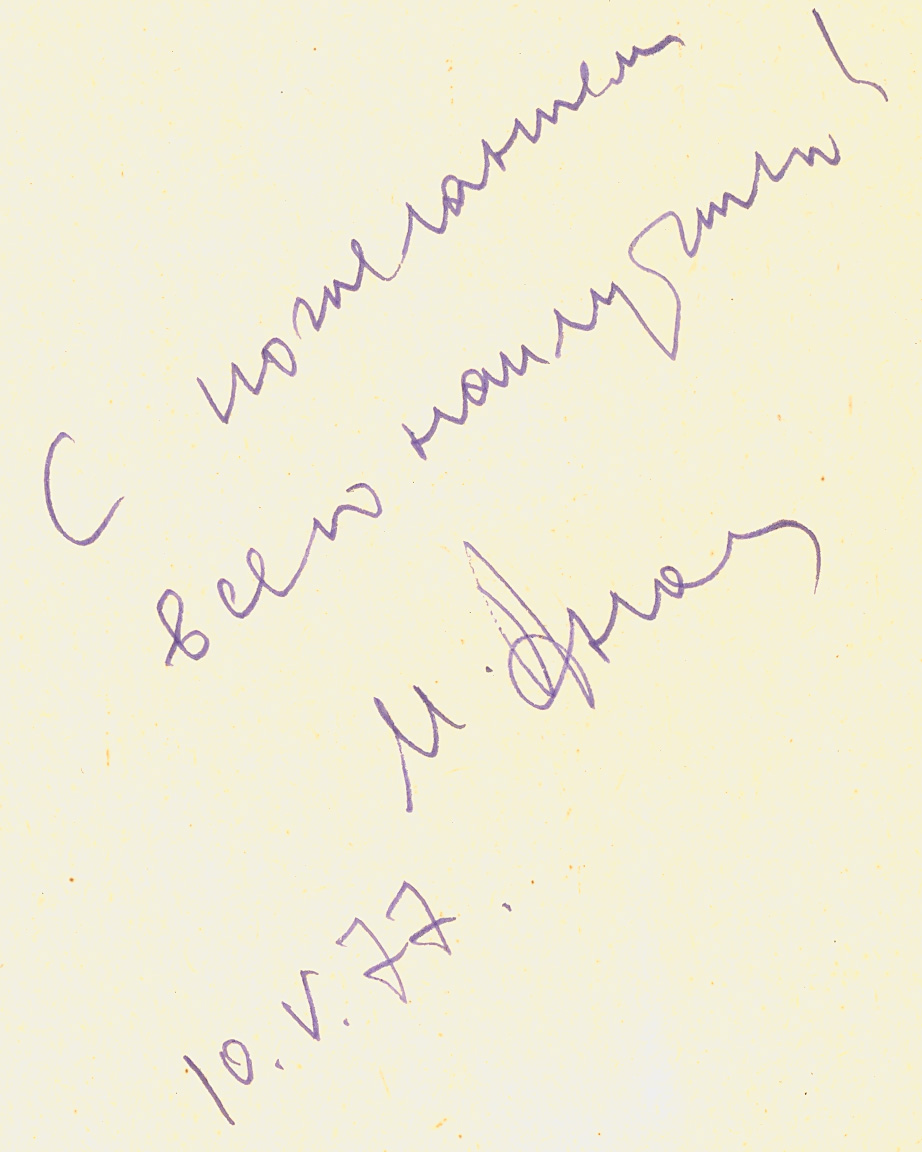 С пожеланием
всего наилучшего!
10.V.77.